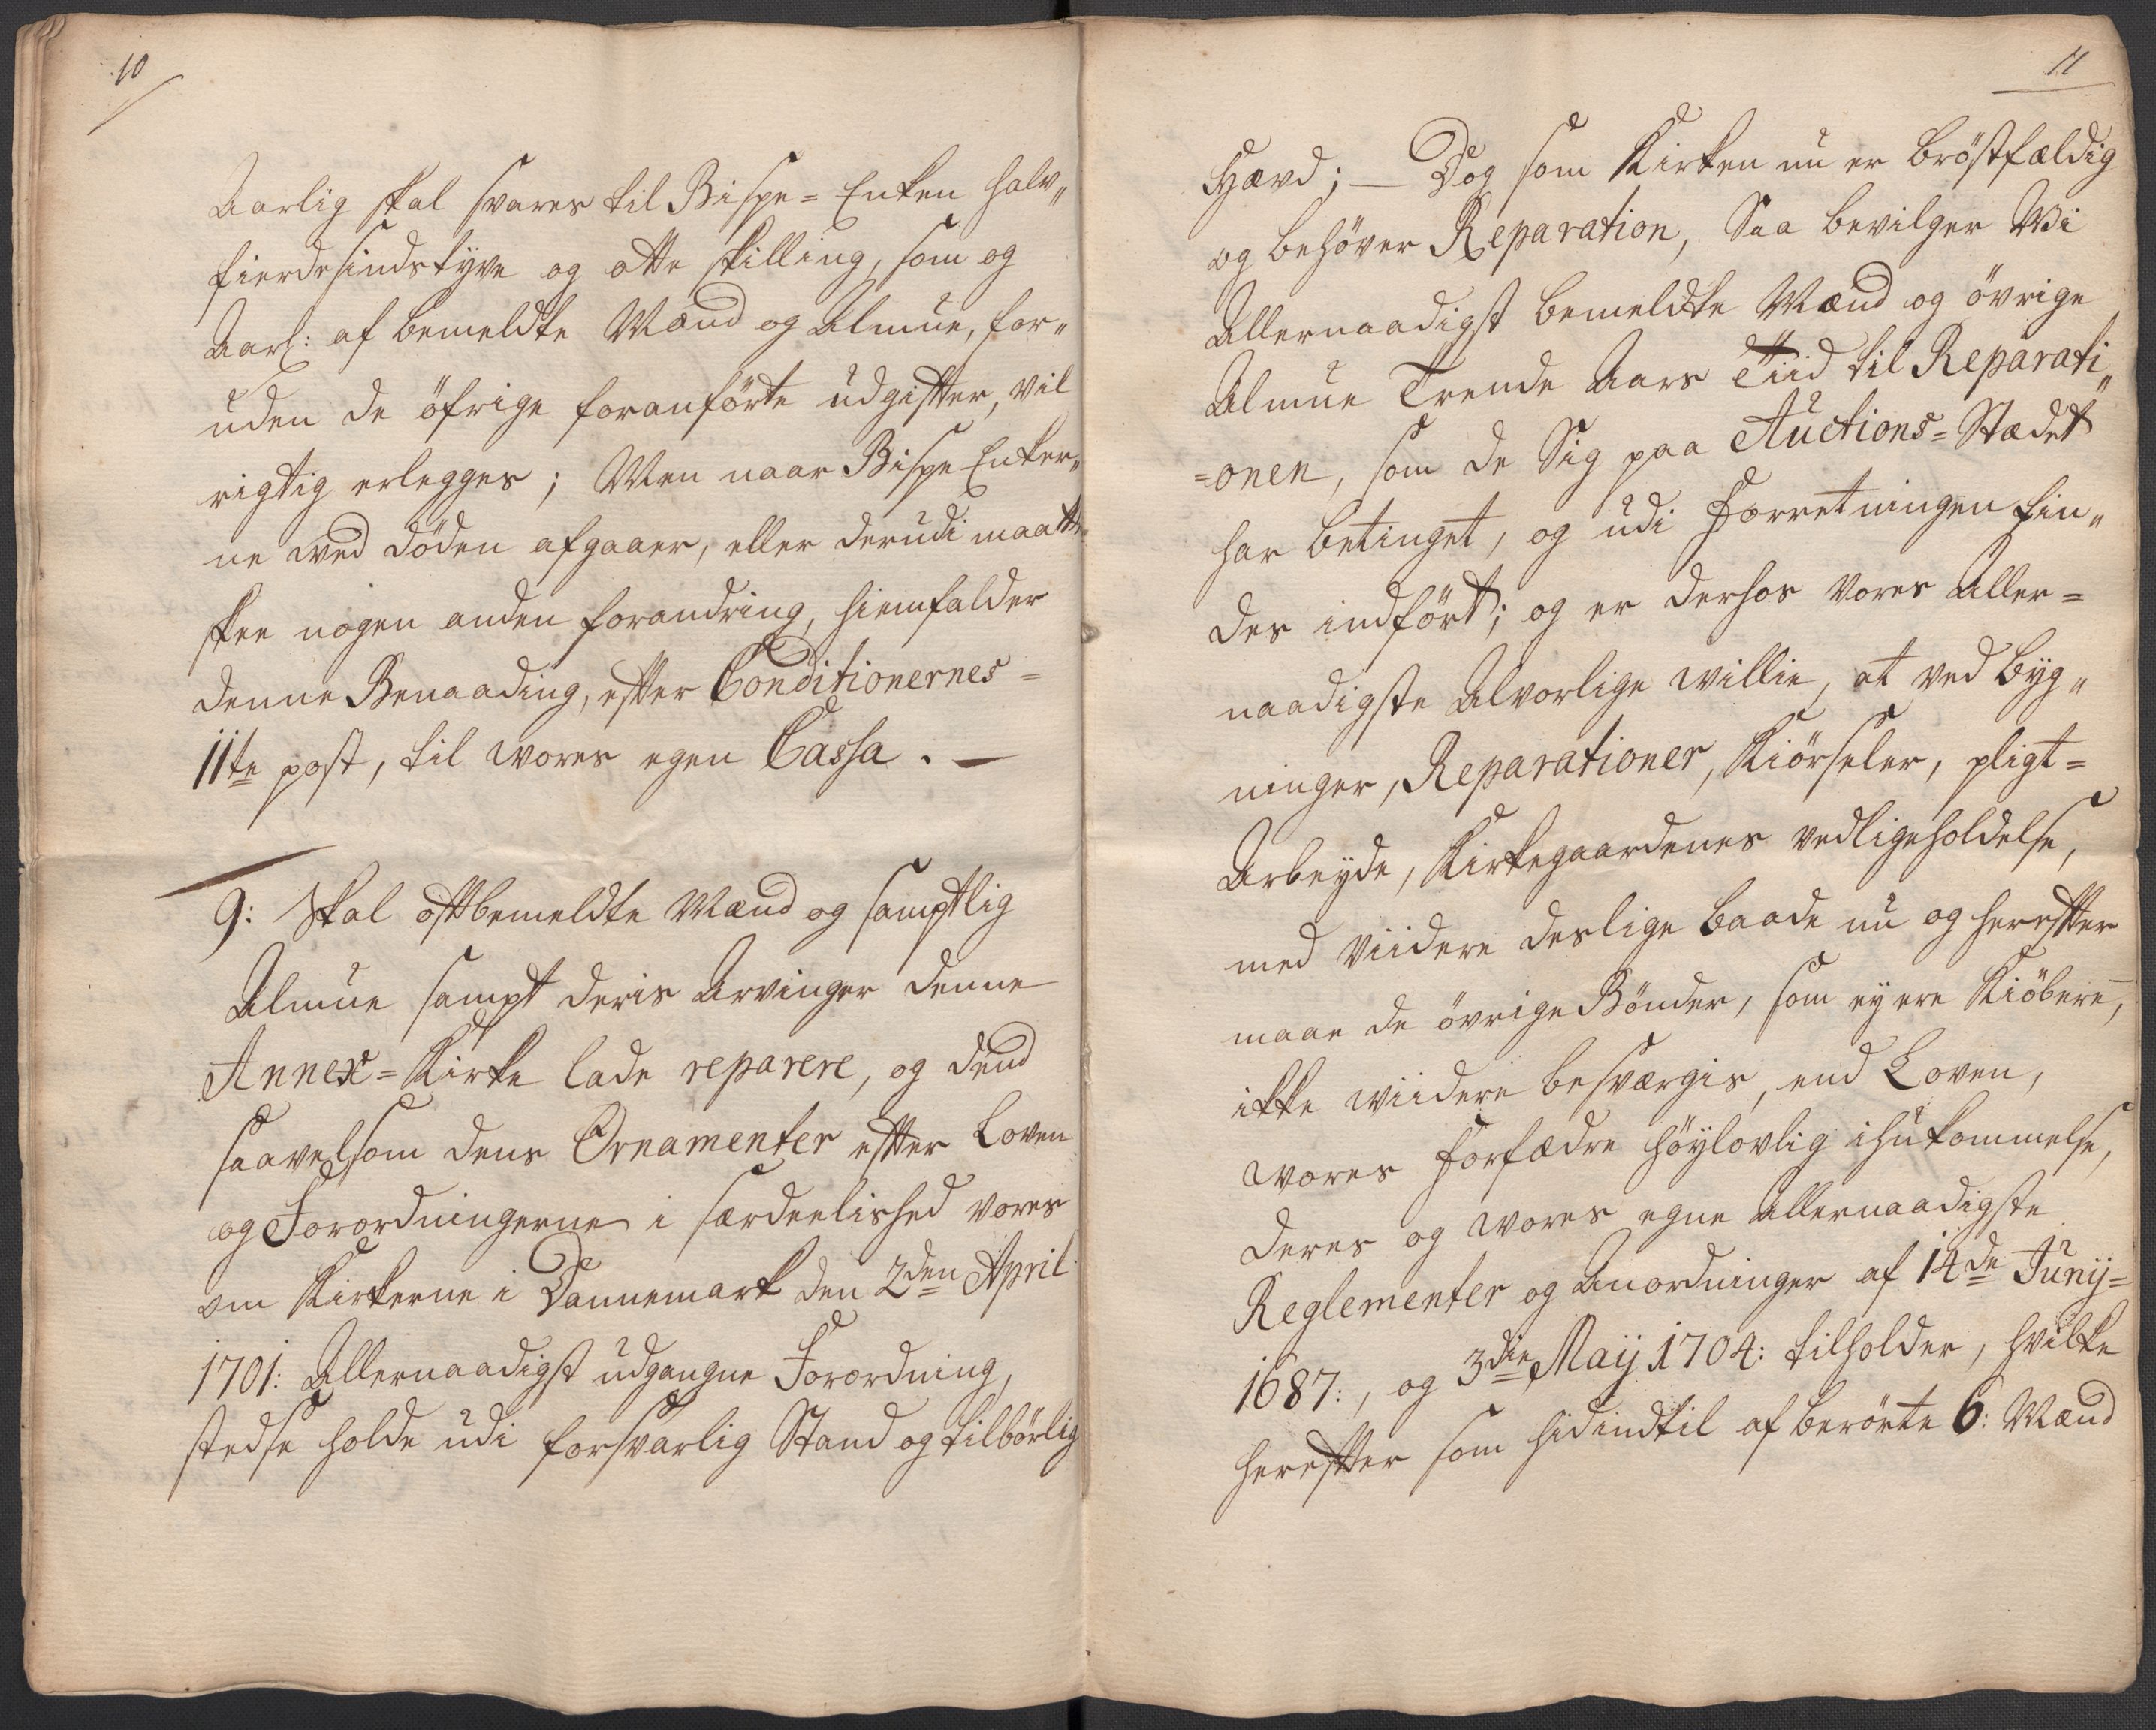 10
Aarlig skal svares til Bispe=Enken halv„
fierdesindstyve og otte skilling, som og
Aarl: af bemeldte Mænd og Almue, for„
uden de öfrige foranförte udgifter, vil
rigtig erlegges; Men naar Bispe Enker„
ne ved döden afgaaer, eller derudi maatte
skee nogen anden forandring, hiemfalder
denne Benaading, efter Conditionernes =
11te post, til wores egen Cassa. —
9: Skal oftbemeldte Mænd og samptlig
Almue sampt deris Arvinger denne
Annex=Kirke lade reparere, og dend
saavelsom dens Ornamenter efter Loven
og Forordningerne i særdeelished vores
om Kirkerne i Dannemark den 2den April
1701: Allernaadigst udgangne Forordning,
stedse holde udi forsvarlig Stand og tilbörlig
11
Hævd; — Dog som Kirken nu er bröstfældig
og behöver Reparation, Saa bevilger Wi
Allernaadigst bemeldte Mænd og övrige
Almue Trende Aars Tiid til Reparati„
=onen, som de Sig paa Auctions=Stædet
har betinget, og udi Forretningen fin„
des indfört; og er derhos vores Aller=
naadigste Alvorlige willie, at ved byg„
ninger, Reparationer, Kiörseler, pligt=
Arbeyde, Kirkegaardenes vedligeholdelse,
med viidere deslige baade nu og herefter
maae de övrige Bönder, som ey ere Kiöbere,
ikke wiidere besværgis, end Loven,
wores Forfædre höylovlig ihukommelse,
deres og wores egne allernaadigste
Reglementer og Anordninger af 14de Junij=
1687:, og 3die Maij 1704: tilholder, hvilke
herefter som hidindtil af berörte 6: Mænd